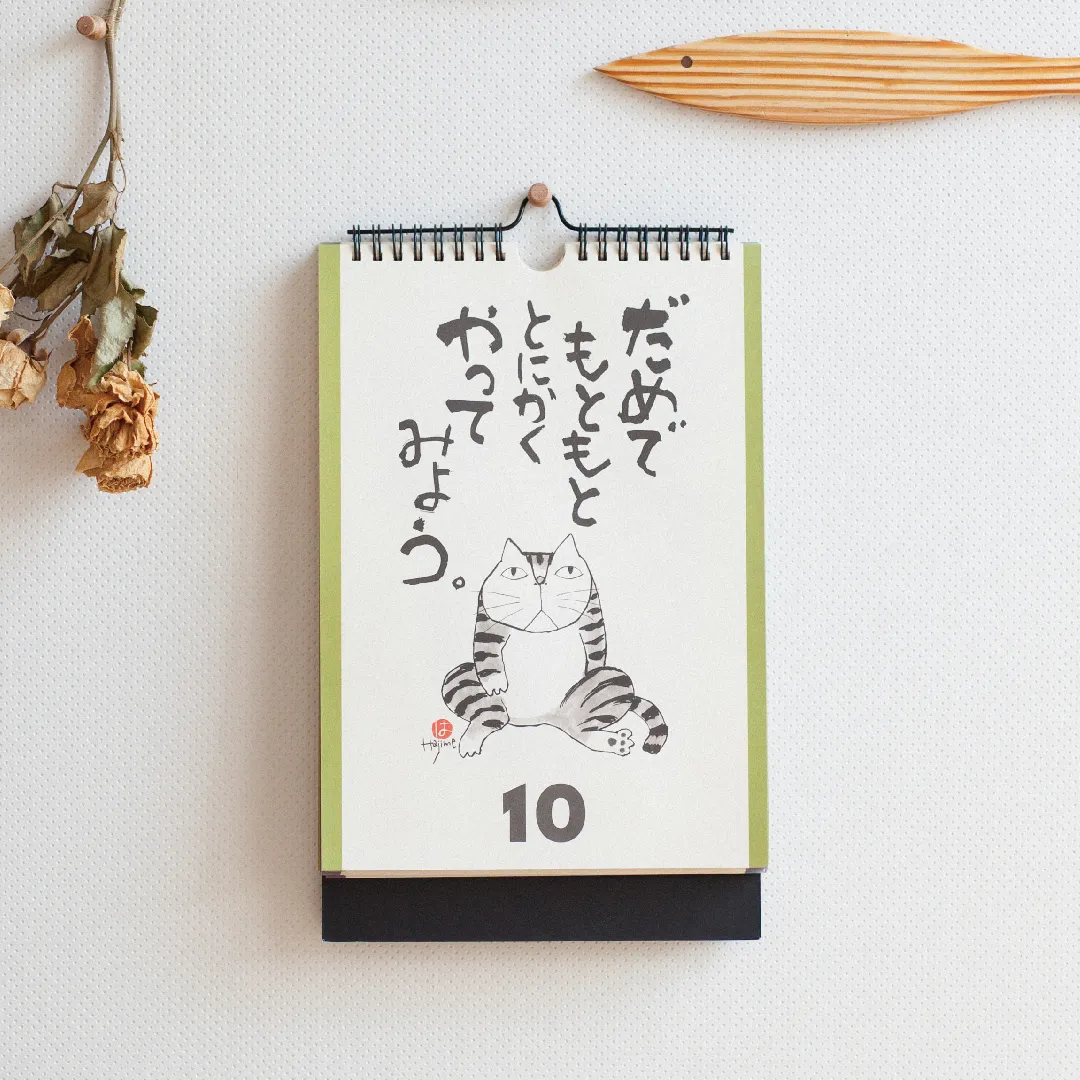 だめで
もともと
とにかく
やって
みよう。
は
Hajime
10